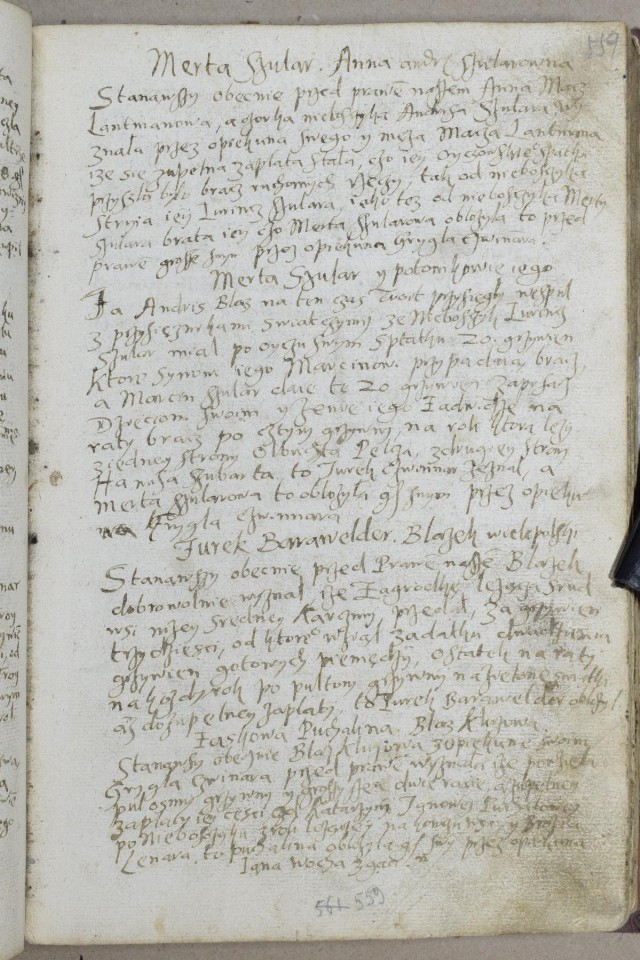 559
Merta Szular. Anna andr Szularowna
Stanąwszy obecnie przed prawē naszem Anna Macz
Lantmanowa, a czorka nieboszczyka Andrisa Szulara
znala przez opiekuna swego y męza Macza Lantmana
ize się zupełna zapłata stała, czo iey
przyszło bracz ruchomych rzeczy, tak od nieboszczyka
stryia iey Lurincz Szulara, iako tez od nieboszczyka Merty
Szulara brata iey czo Merta Szularowa obłozyła to przed
prawē grosze swym przez opiekuna Grygla Czwinara.
Merta Szular y potomkowie iego
Ja Andris Blaz na ten czas woit przysięgły wespuł
z przysięznikami swiatczymy ze Nieboszczyk Lurincz
Szular miał po oyczu swym spłatku 20. grzywien
ktore synowi iego Marcinow. przypadaią bracz,
a Marcin Szular daie te 20 grzywien zapisacz
Dzieciom swoim y zenie iego Jadwidze na
raty bracz po cztyry grzywni, na rok ktora lezy
ziedney strony Olbrichta Pelcza, zdrugiey strony
Hanusa Szubarta, to Jurek Czwinar zeznał, a
Merta Szularowa to obłozyła gſ swym przez opieku
na Krygla Czwinara
Jurek Barawelder. Blazek wielopolski
Stanąwszy obecnie przed Prawē naszē Blazek
dobrowolnie wyznał ize Zagrodkę lezącą srud
wsi nizey sredniey karczmy przedał, za grzywien
trzydziesci, od ktore wziął zadatku
grzywien gotowych pieniędzy, ostatek na raty
na kozdy rok po pultory grzywny na
az do zupełney zapłaty, to Jurek Barawelder obłozył
Jaskowa Puchalina. Blaz Klugowa.
Stanąwszy obecnie Blaz Klugowa zopiekunē swoim
Grygla Czwinara przed prawē wyznała ize
pułosmy grzywny y groszy
zapłaty iey czesci Katarzyny
po Nieboszczyku
Lenara, to puchalina obłozyła gſ swy przez opiekuna
Jana wocha
561 559